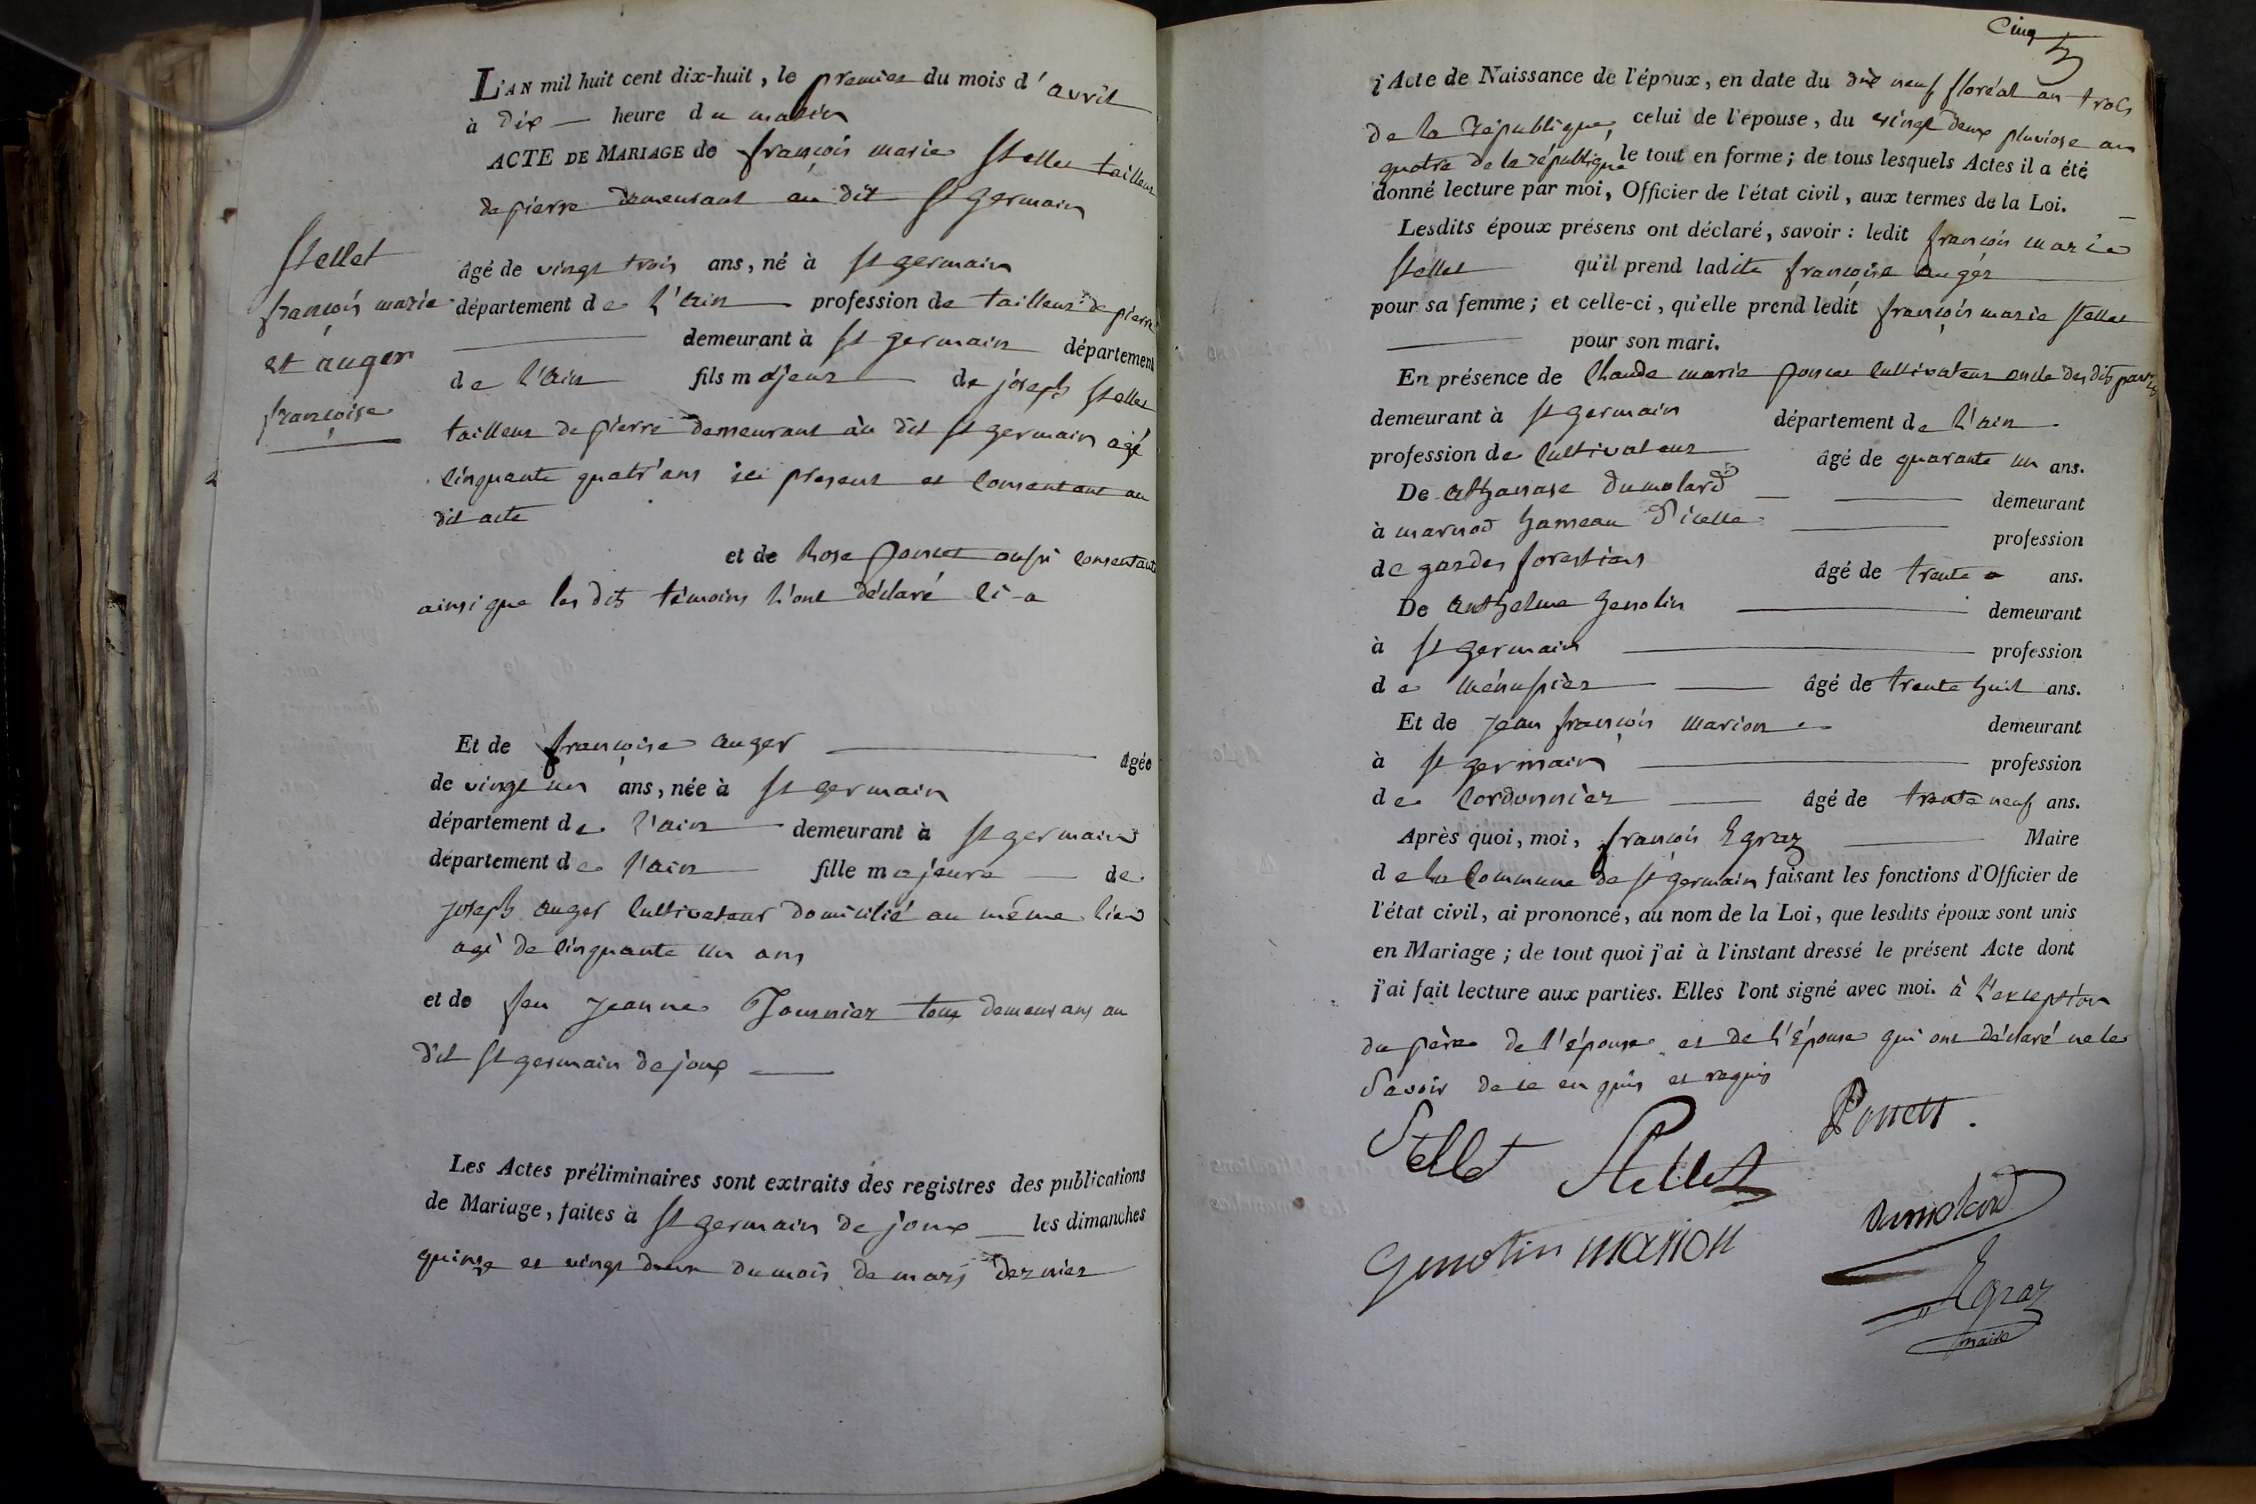 L'AN mil huit cent dix-huit, le premier du mois d'avril
à dix — heure du matin
ACTE DE MARIAGE de françois marie Stellet tailleur
de pierre demeurant au dit St germain
Stellet
françois marie
et auger
françoise
âgé de vingt trois ans, né à St germain
département de l'ain profession de tailleur de pierre
demeurant à St germain département
de l'ain fils majeur de joseph Stellet
tailleur de pierre demeurant au dit St germain agé
cinquante quatr'ans ici present et consentant au
dit acte
et de Rose poncet aussi consentante
ainsi que les dits témoins l'ont déclaré
Et de françoise auger âgée
de vingt un ans, née à St germain
département de l'ain demeurant à St germain
département de l'ain fille majeure de
joseph auger cultivateur domicilié au même lieu
agé de cinquante un ans
et de feu jeanne tous demeurans au
dit St germain de joux
Les Actes préliminaires sont extraits des registres des publications
de Mariage, faites à St germain de joux les dimanches
quinze et vingt deux du mois de mars dernier
Cinq
5
l'Acte de Naissance de l'époux, en date du dix neuf floréal an trois
de la république, celui de l'épouse, du vingt deux pluviose an
quatre de la république le tout en forme; de tous lesquels Actes il a été
donné lecture par moi, Officier de l'état civil, aux termes de la Loi.
Lesdits époux présens ont déclaré, savoir: ledit françois marie
Stellet qu'il prend ladite françoise auger
pour sa femme; et celle-ci, qu'elle prend ledit françois marie Stellet
pour son mari.
En présence de Claude marie poncet cultivateur oncle des dits parties
demeurant à St germain département de l'ain
profession de cultivateur âgé de quarante un ans.
De athanase dumolard demeurant
à marnod hameau d'icelle profession
de gardes forestiers âgé de trente ans.
De anthelme genolin demeurant
à St germain profession
de ménusier âgé de trente huit ans.
Et de jean françois marion demeurant
à St germain profession
de cordonnier âgé de trente neuf ans.
Après quoi, moi, françois Egraz Maire
de la Commune de St germain faisant les fonctions d'Officier de
l'état civil, ai prononcé, au nom de la Loi, que lesdits époux sont unis
en Mariage; de tout quoi j'ai à l'instant dressé le présent Acte dont
j'ai fait lecture aux parties. Elles l'ont signé avec moi. à l'exception
du père de l'épouse et de l'épouse qui ont déclaré ne le
Savoir de ce enquis et requis
Stellet Stellet Poncet.
Genolin marion Dumolard
Egraz
maire